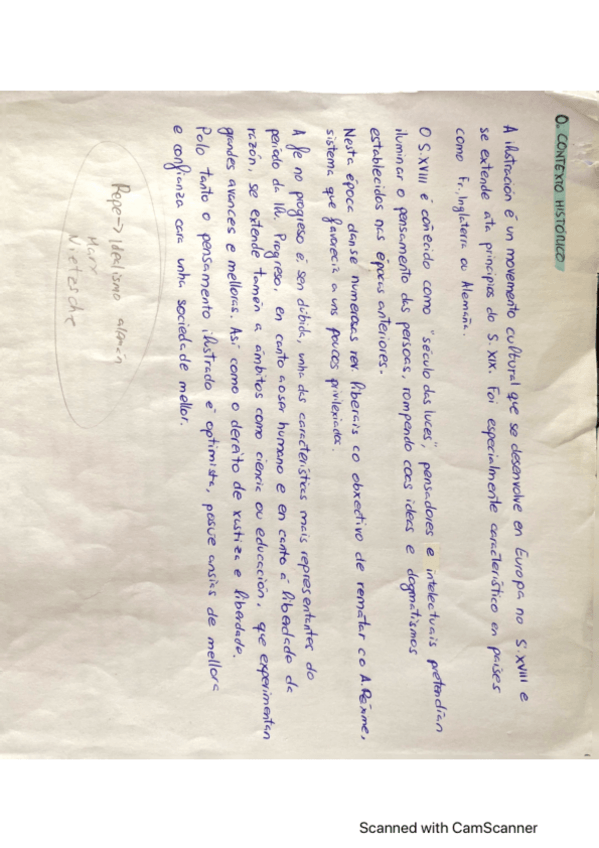 0. CONTEXTO HISTÓRICO
A ilustración é un movemento cultural que se desenvolve en Europa no S.XVIII e
se extende ata principios do S.XIX. Foi especialmente característico en países
como Fr, Inglaterra ou Alemaña.
O S.XVIII é coñecido como "século das luces", pensadores e intelectuais pretendían
iluminar o pensamento das persoas, rompendo coas ideas e dogmatismos
establecidos nas épocas anteriores.
Nesta época danse numerosas rev. liberais co obxectivo de rematar co A.Réxime,
sistema que favorecía a uns poucos privilexiados.
A fe no progreso é, sen dúbida, unha das características mais representantes do
período da Ilu. Progreso, en canto ao ser humano e en canto á liberdade da
razón, se extende tamén a ámbitos como ciencia ou educación, que experimentan
grandes avances e melloras. Así como o dereito de xustiza e liberdade.
Polo tanto o pensamento ilustrado é optimista, posue ansias de mellora
e confianza cara unha sociedade mellor.
Repe → Idealismo alemán
Marx
Nietzsche
Scanned with CamScanner